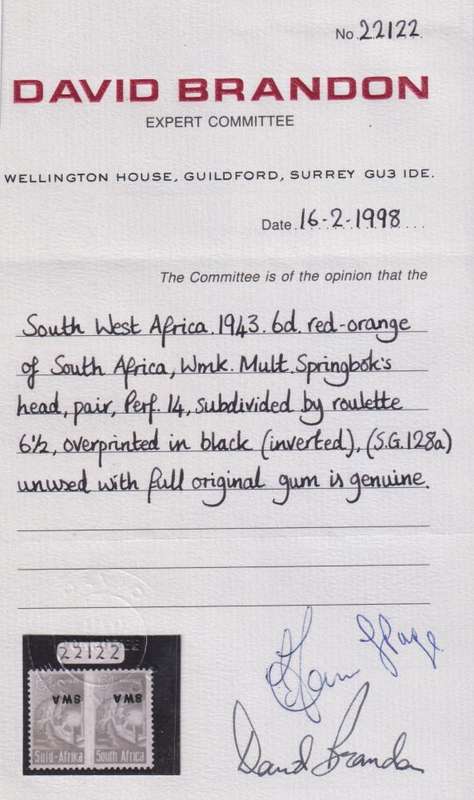 No. 22122
DAVID BRANDON
EXPERT COMMITTEE
WELLINGTON HOUSE, GUILDFORD, SURREY GU3 IDE.
Date 16-2-1998
The Committee is of the opinion that the
South West Africa. 1943. 6d. red-orange
of South Africa, Wmk. Mult. Springbok's
head, pair, Perf. 14, subdivided by roulette
6½, overprinted in black (inverted), (S.G.128a)
unused with full original gum is genuine.
22122
SWA SWA
Suid-Afrika South Africa
David Brandon